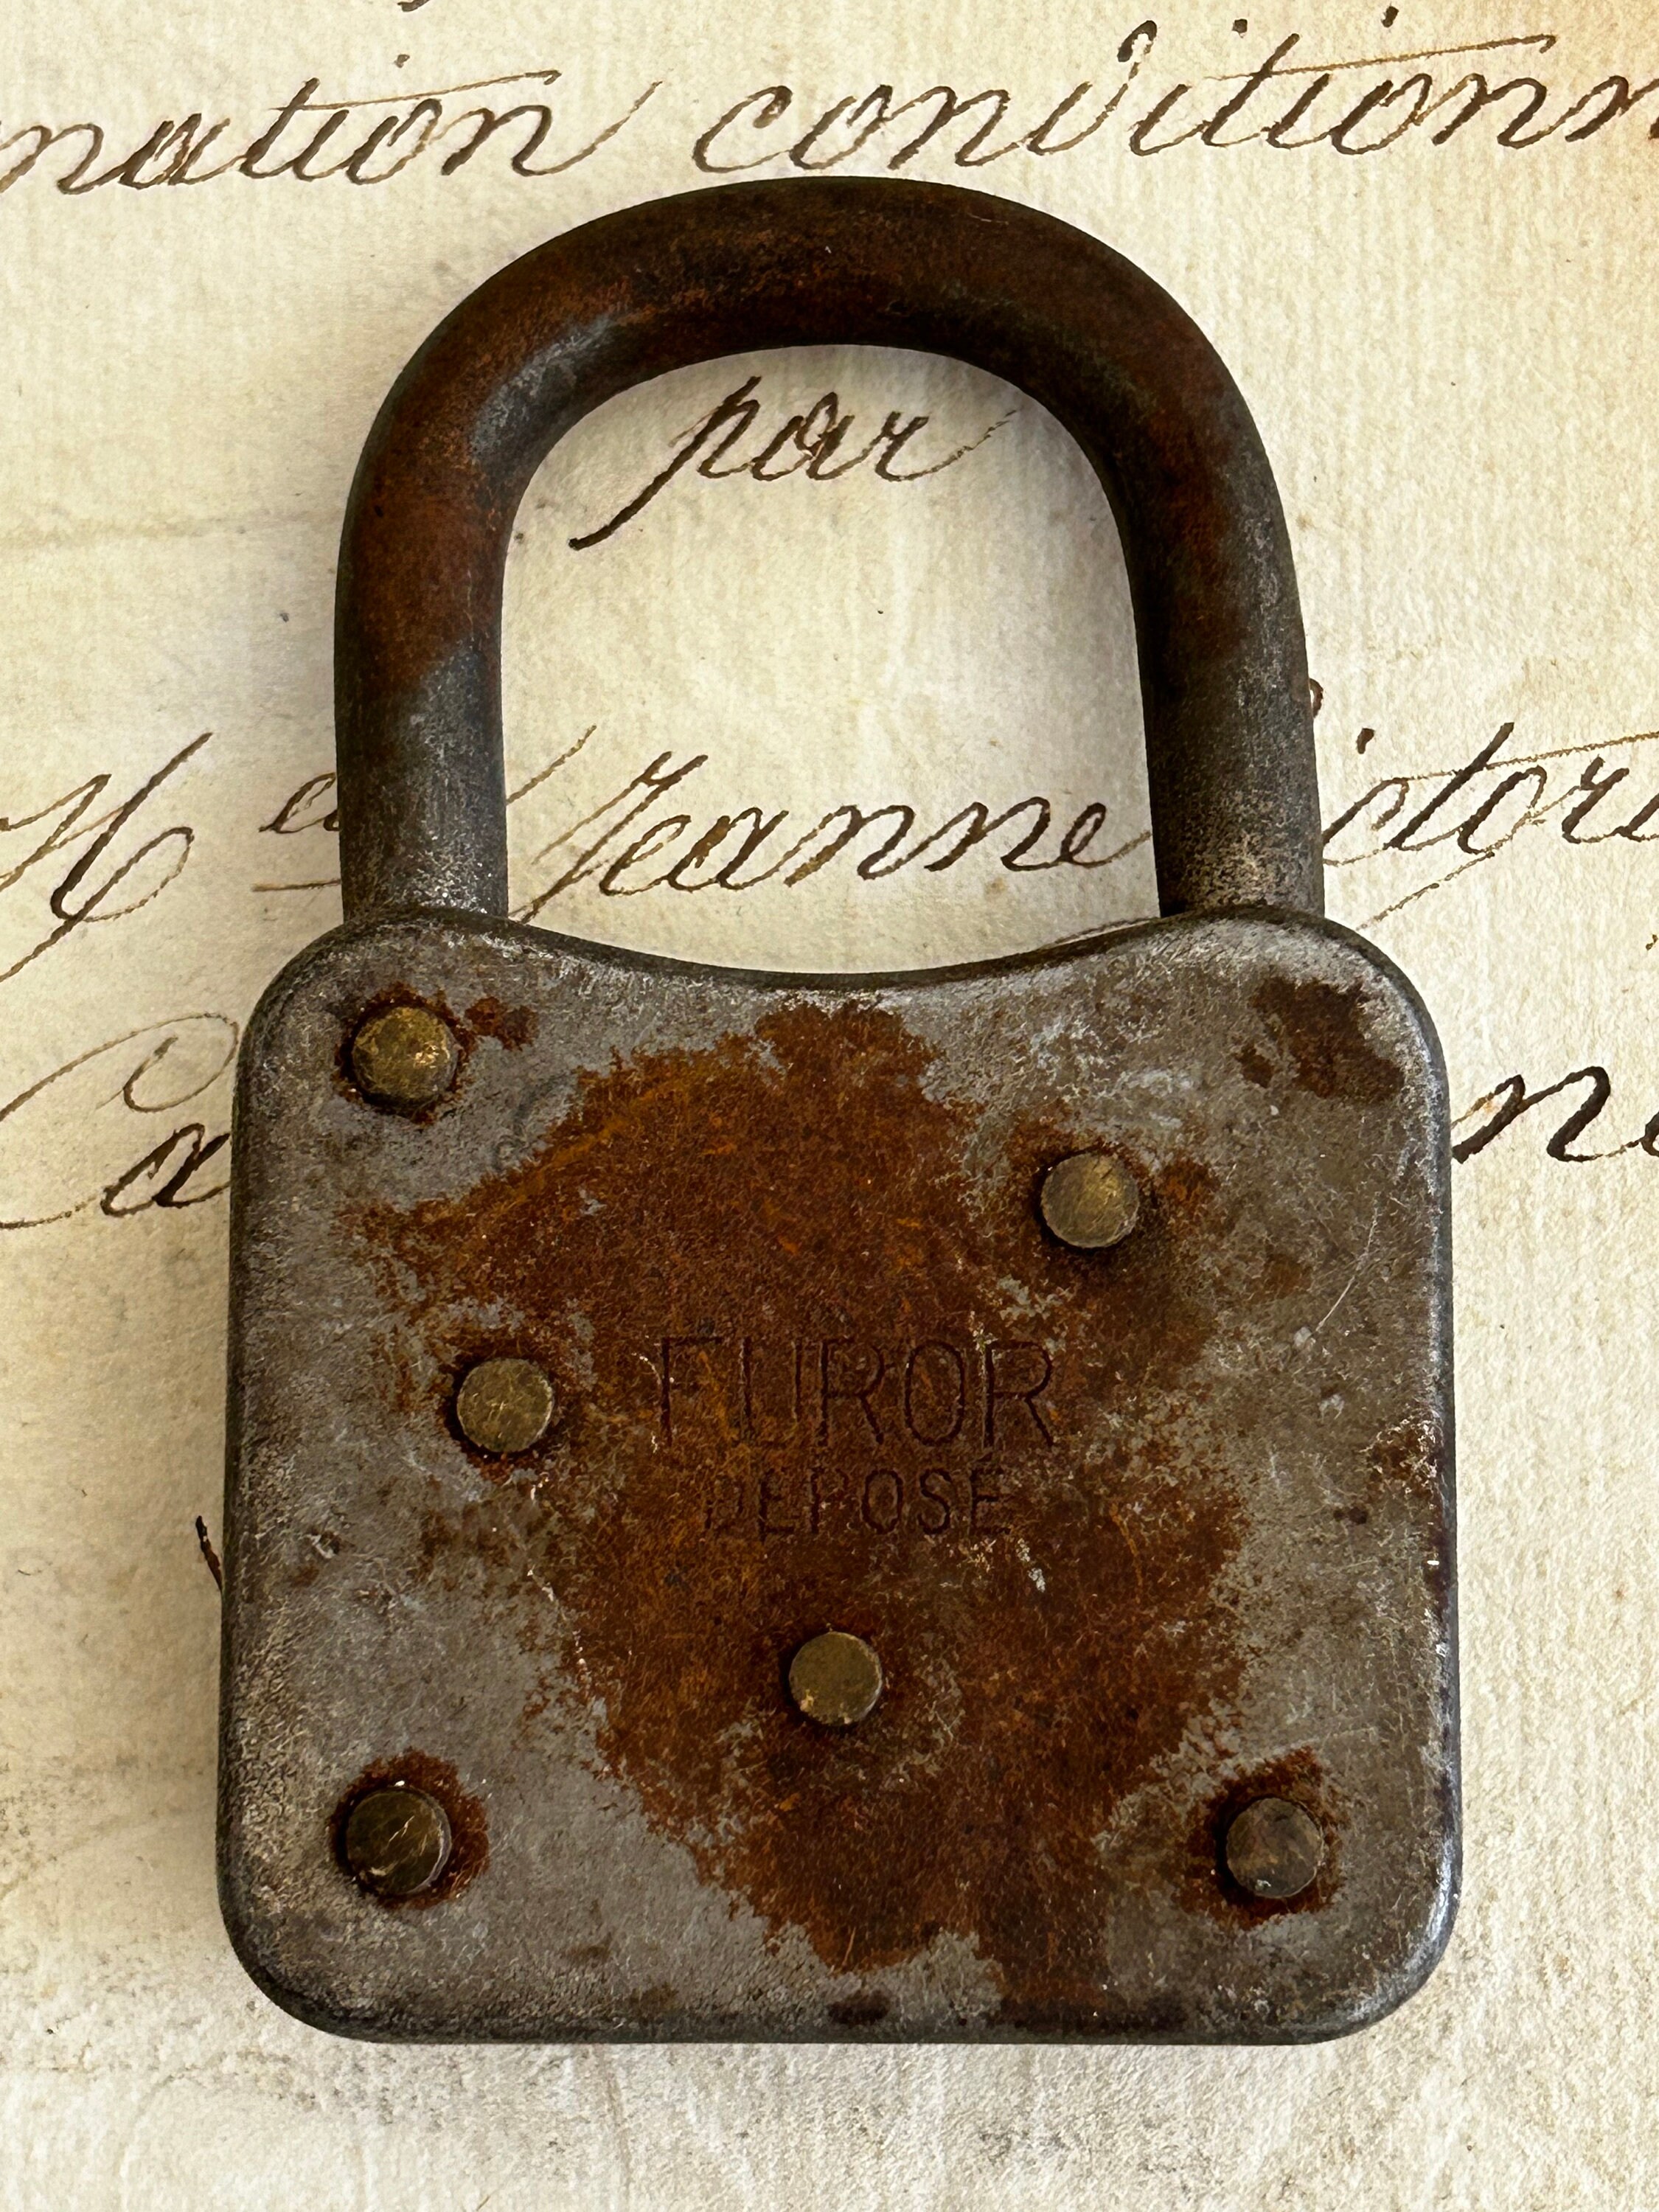 nation conditionn
par
Melle Jeanne ictori
Ca ne
FUROR
DÉPOSÉ